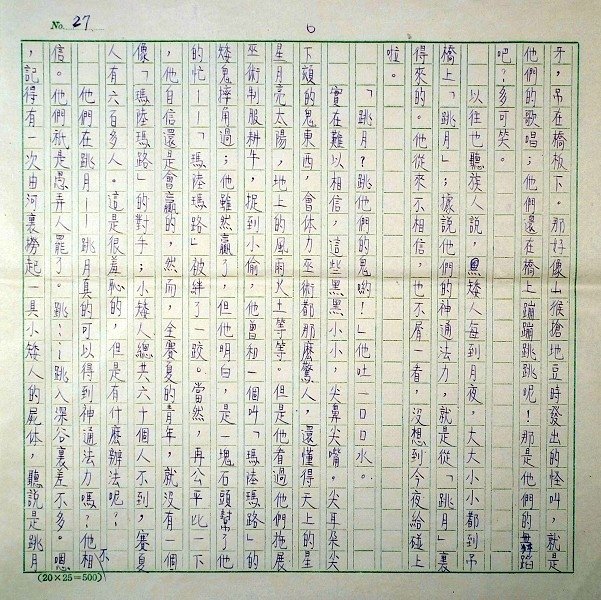 No. 27
6
牙,吊在橋板下。那好像山猴搶地豆時發出的怪叫,就是
他們的歌唱;他們還在橋上蹦蹦跳跳呢!那是他們的舞蹈
吧?多可笑。
以往也聽族人說,黑矮人每到月夜,大大小小都到吊
橋上「跳月」;據說他們的神通法力,就是從「跳月」裏
得來的。他從來不相信,也不屑一看,沒想到今夜給碰上
啦。
「跳月?跳他們的鬼喲!」他吐一口口水。
實在難以相信,這些黑黑小小,尖鼻尖嘴。尖耳朵尖
下頦的鬼東西,會体力巫術都那麼驚人,還懂得天上的星
星月亮太陽,地上的風雨火土等等。但是他看過他們施展
巫術制服耕牛,捉到小偷,他曾和一個叫「瑪陸瑪路」的
矮鬼摔角過;他雖然贏了,但他明白,是一塊石頭幫了他
的忙——「瑪陸瑪路」被絆了一跤。當然,再公平比一下
,他自信還是會贏的,然而,全賽夏的青年,就沒有一個
像「瑪陸瑪路」的對手;小矮人總共六十個人不到,賽夏
人有六百多人。這是很羞恥的,但是有什麼辦法呢?
他們在跳月——跳月真的可以得到神通法力嗎?他不相
信。他們祇是愚弄人罷了。跳…!跳入深谷裏差不多。嗯
,記得有一次由河裏撈起一具小矮人的屍体,聽說是跳月
(20×25=500)